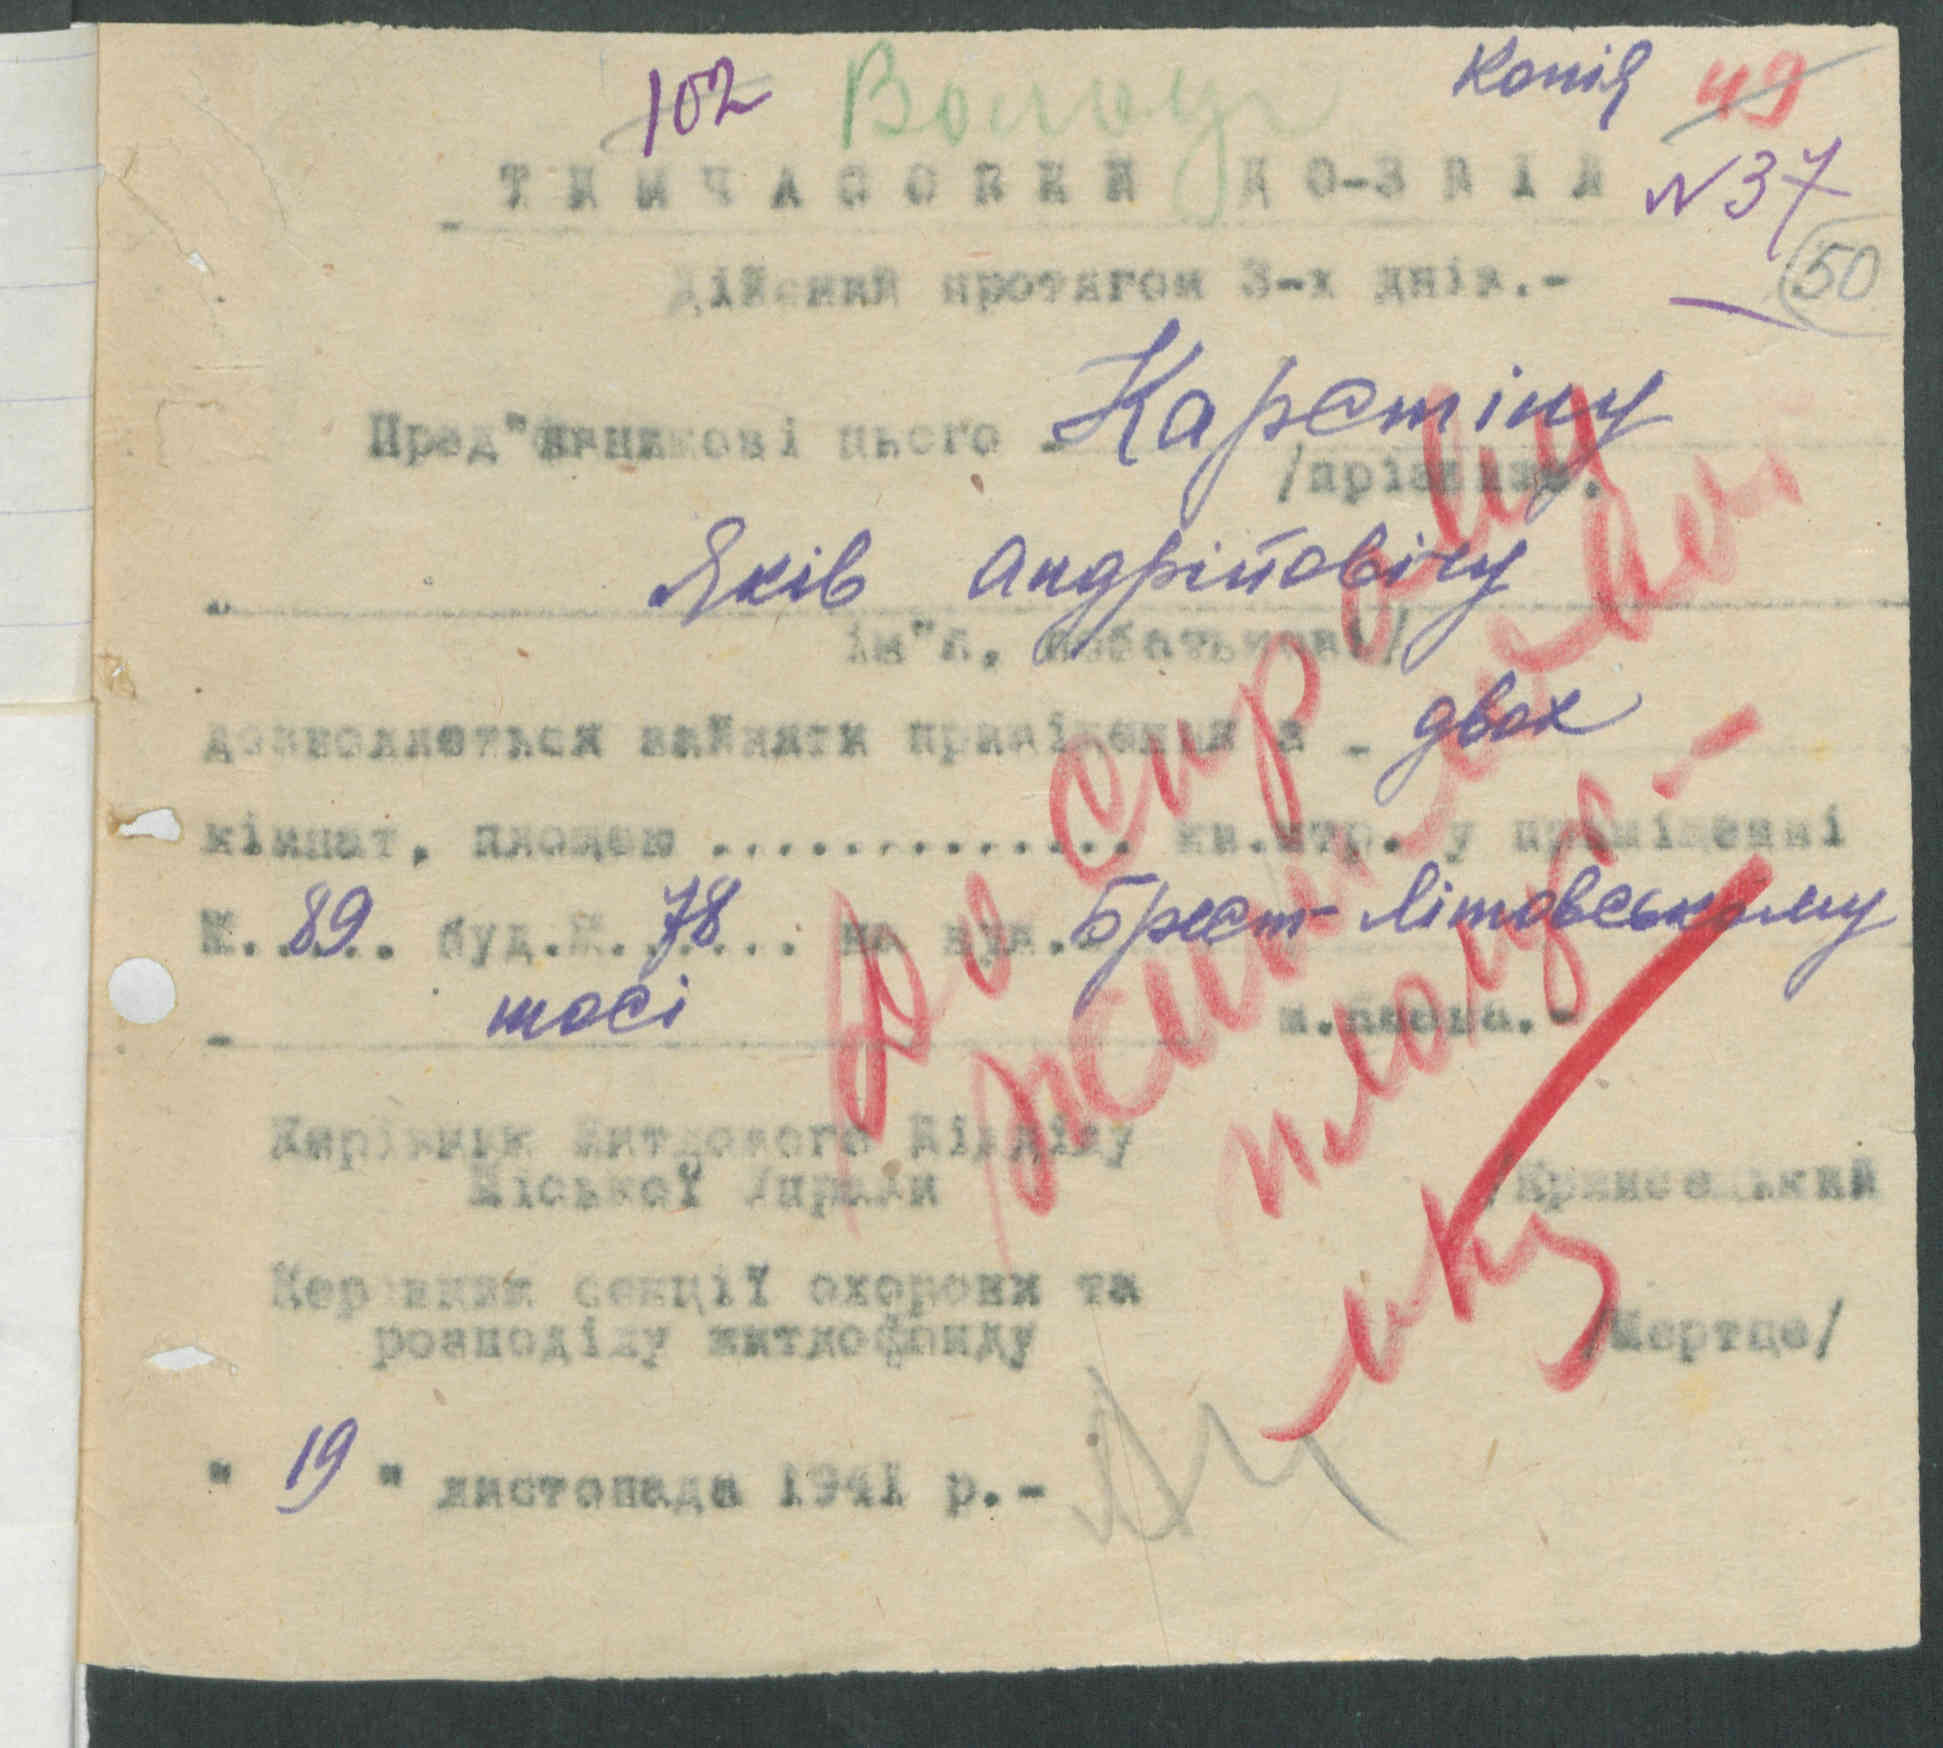 102 Копія 49
ТИМЧАСОВИЙ ДО-ЗВІЛ N 37
50
Дійсний протягом 3-х днів.-
Пред"явникові цього - Карєтіну
/прізвище.
Яків Андрійовічу
ім"я, побатькові/
дозволяеться зайняти приміщення з - двох
кімнат, площею .............. кв.мтр. у приміщенні
№. 89 буд.№. 78 по вул. Брест-Літовському
шосі м.Києва.-
Керівник Житлового Відділу
Міської Управи
Керівник секції охорони та
розподілу житлофонду
" 19 " листопада 1941 р.-
До справи
площу.-